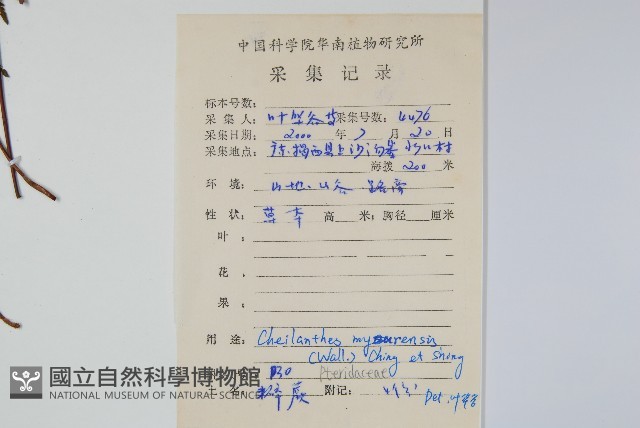 中国科学院华南植物研究所
采集记录
标本号数:
采集人: 叶华谷等 采集号数: 4476
采集日期: 2000 年 7 月 20 日
采集地点: 揭西县上沙 村
海拨 200 米
环境: 山地、山谷 路旁
性状: 草本 高 米; 胸径 厘米
叶:
花,
果:
用途: Cheilanthes mysurensis
(Wall.) Ching et Shing
130 Pteridaceae
碎 蕨 附记: Det.
國立自然科學博物館
NATIONAL MUSEUM OF NATURAL SCIENCE